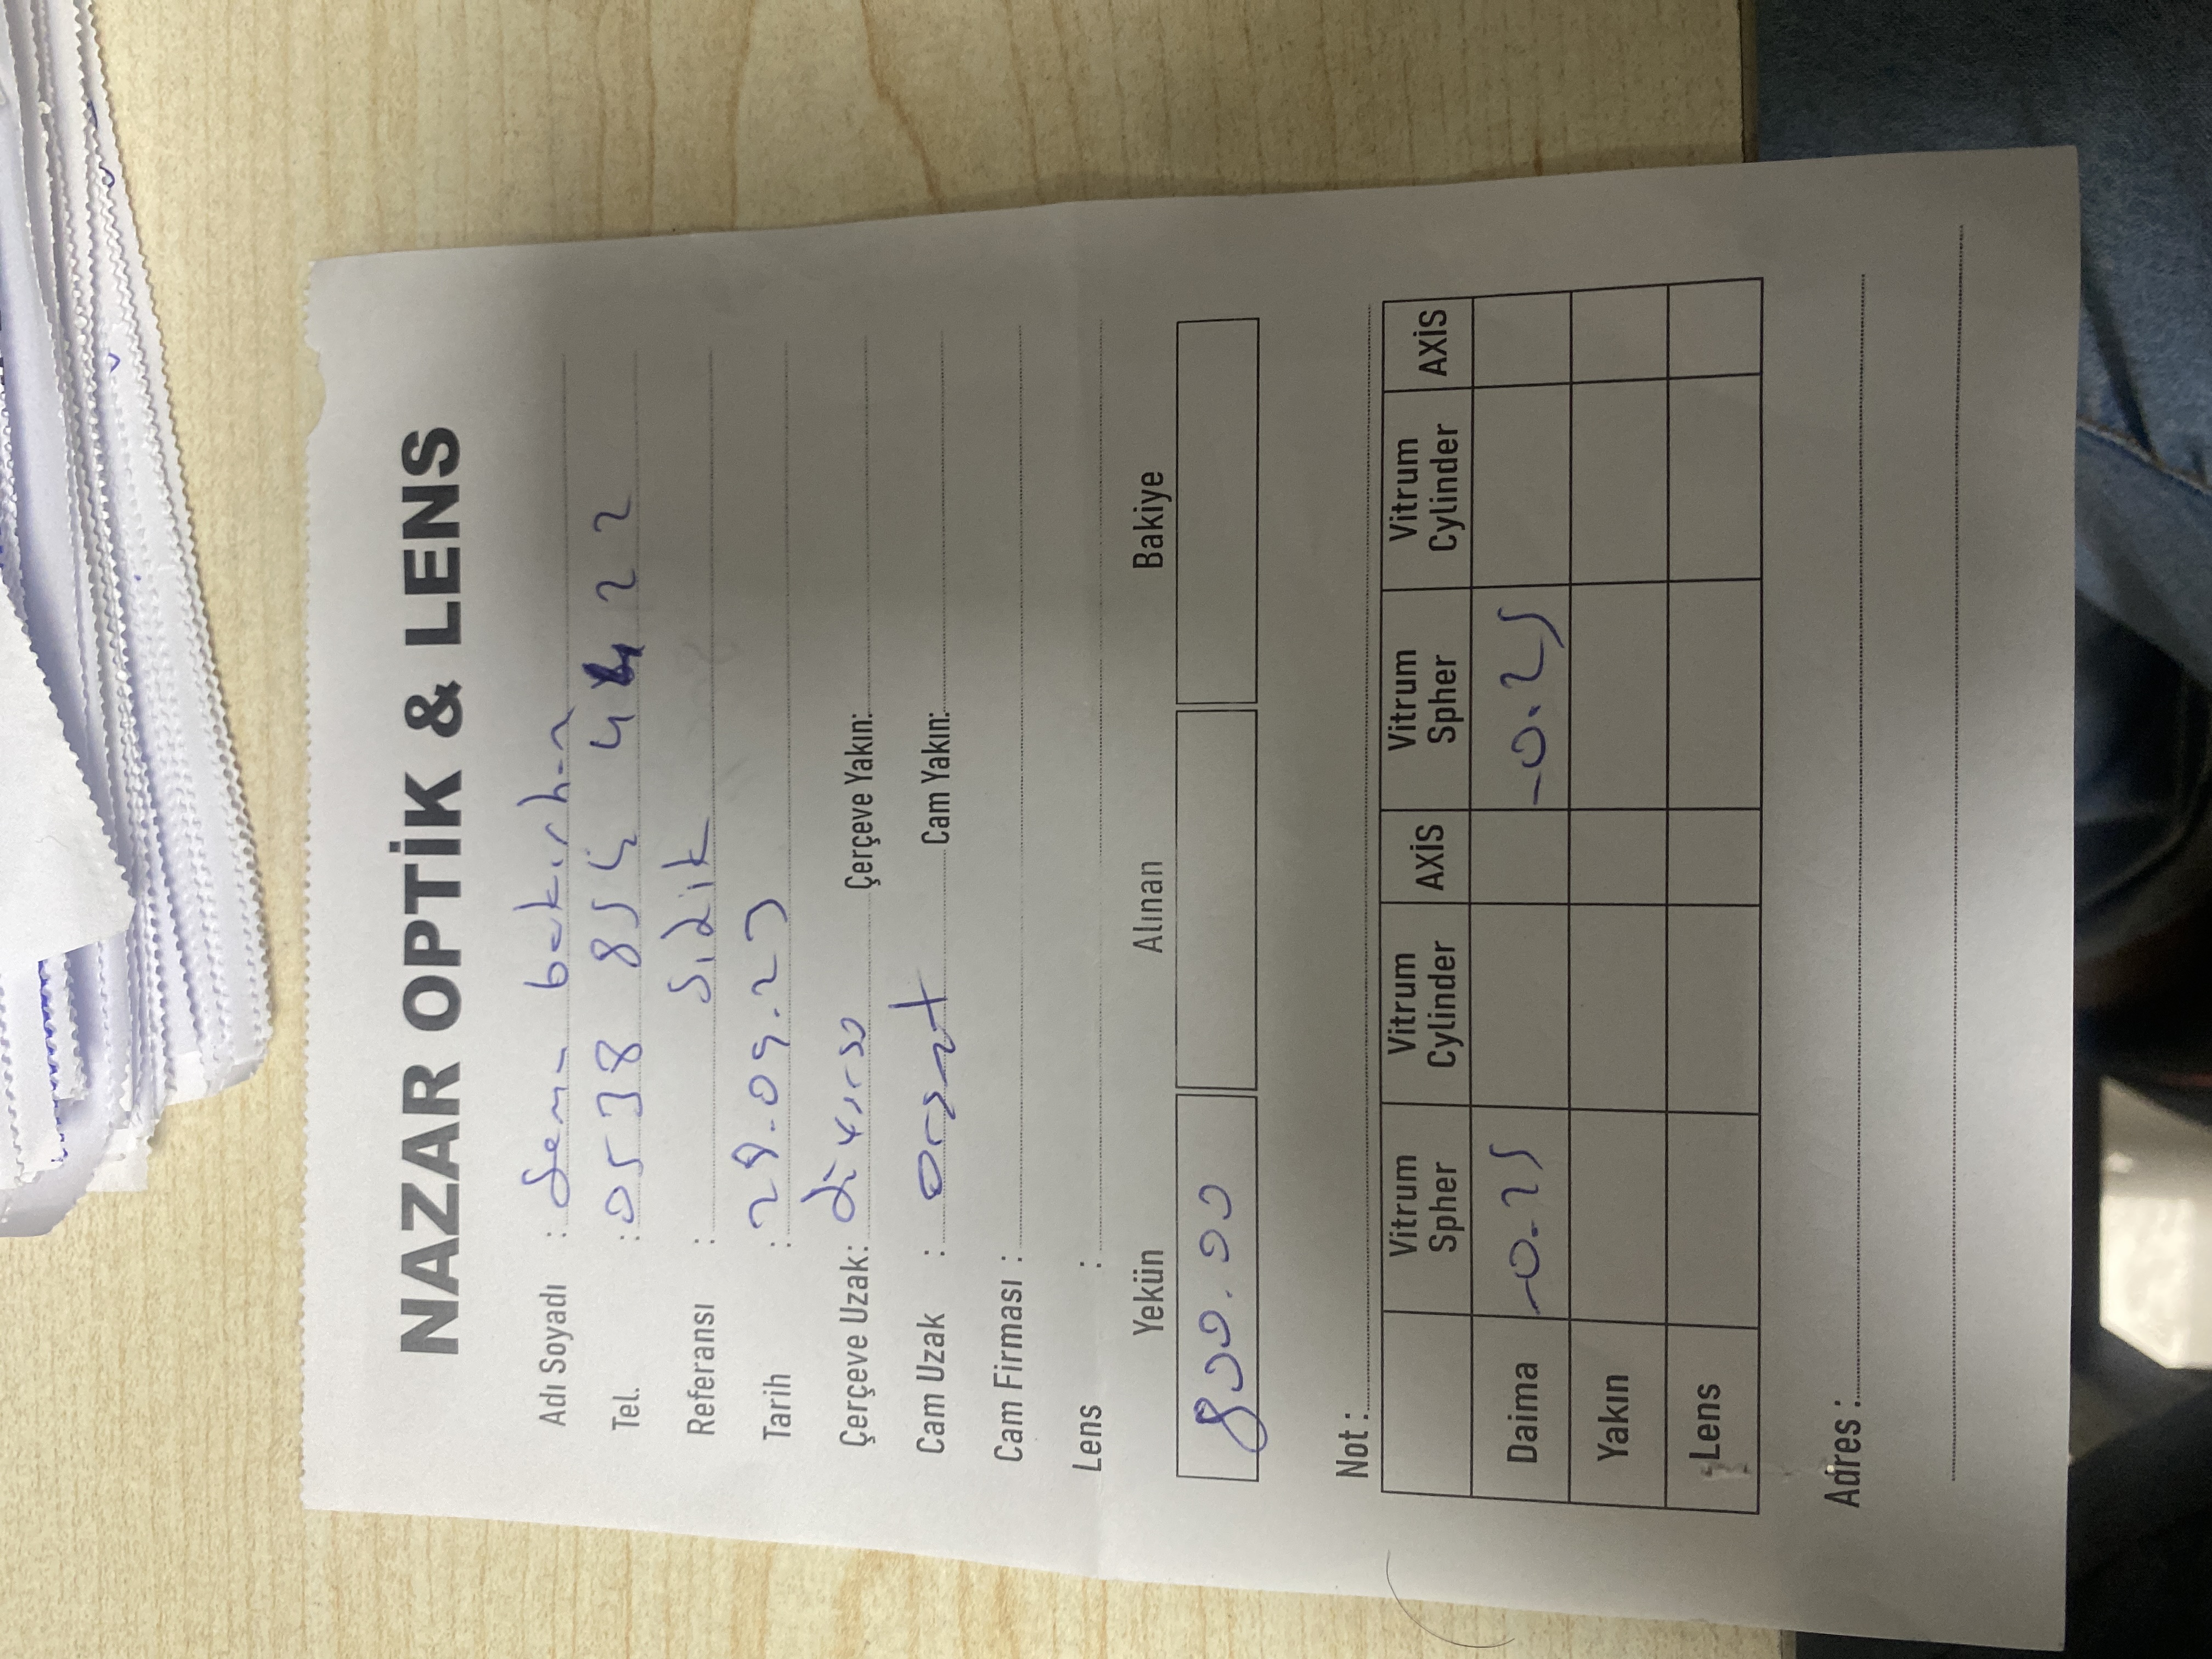 NAZAR OPTİK & LENS
Adı Soyadı : Sema bakırhan
Tel. : 0538 854 44 22
Referansı : Sıdık
Tarih : 28.09.23
Çerçeve Uzak: Çerçeve Yakın:
Cam Uzak : Cam Yakın:
Cam Firması :
Lens :
Yekün Alınan Bakiye
800.00
Not :
Vitrum Spher Vitrum Cylinder AXİS Vitrum Spher Vitrum Cylinder AXİS
Daima -0.25 -0.25
Yakın
Lens
Adres :